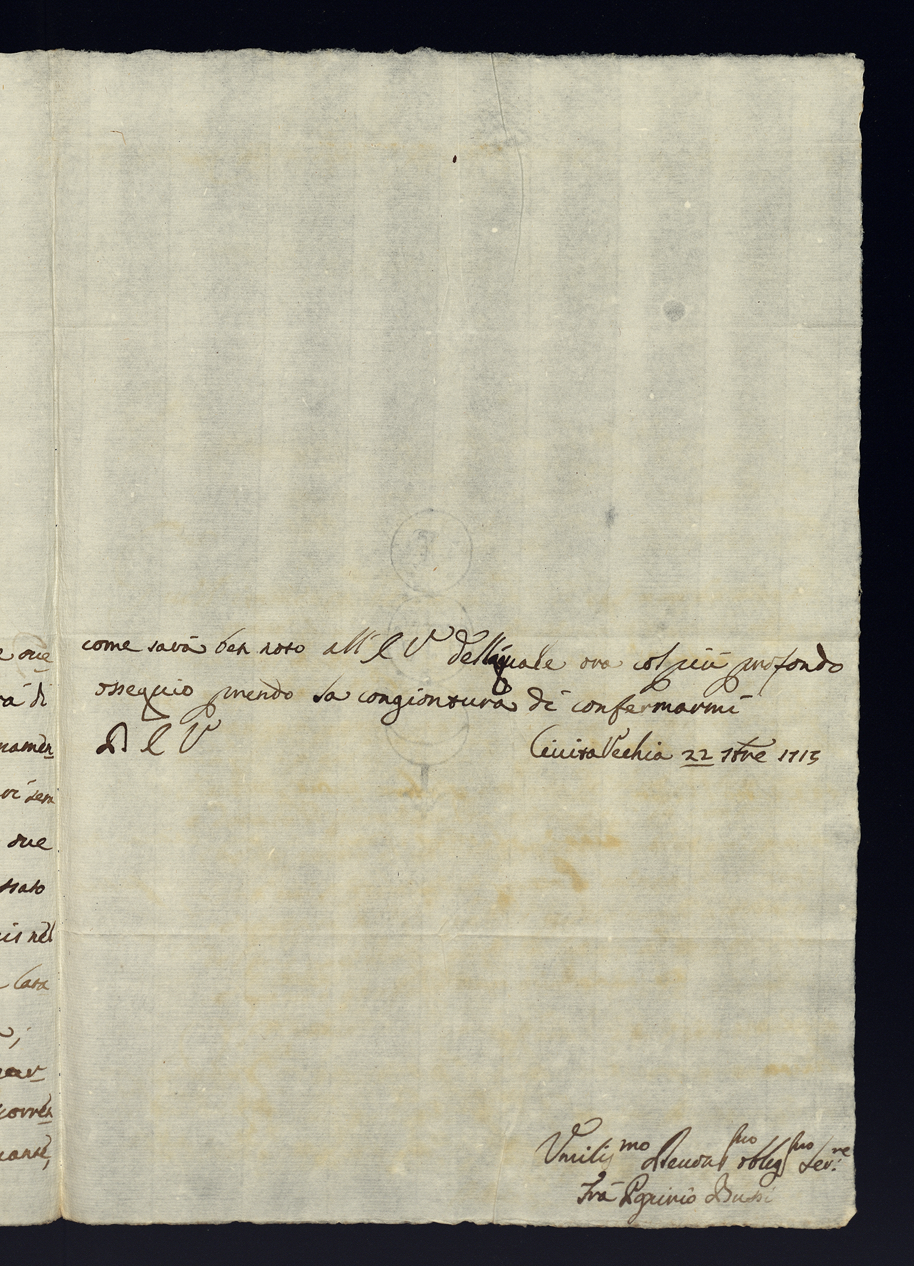 e due
rà di
namen
vi sem
due
ssato
is nel
Casa
corren
come sarà ben noto all' E V della quale ora col più profondo
ossequio prendo la congiontura di confermarmi
D E V
Civita Vechia 22 7bre 1715
Umiliss.mo Devotiss.mo obligss.mo Ser.re
Frà Pgrinio Bussi